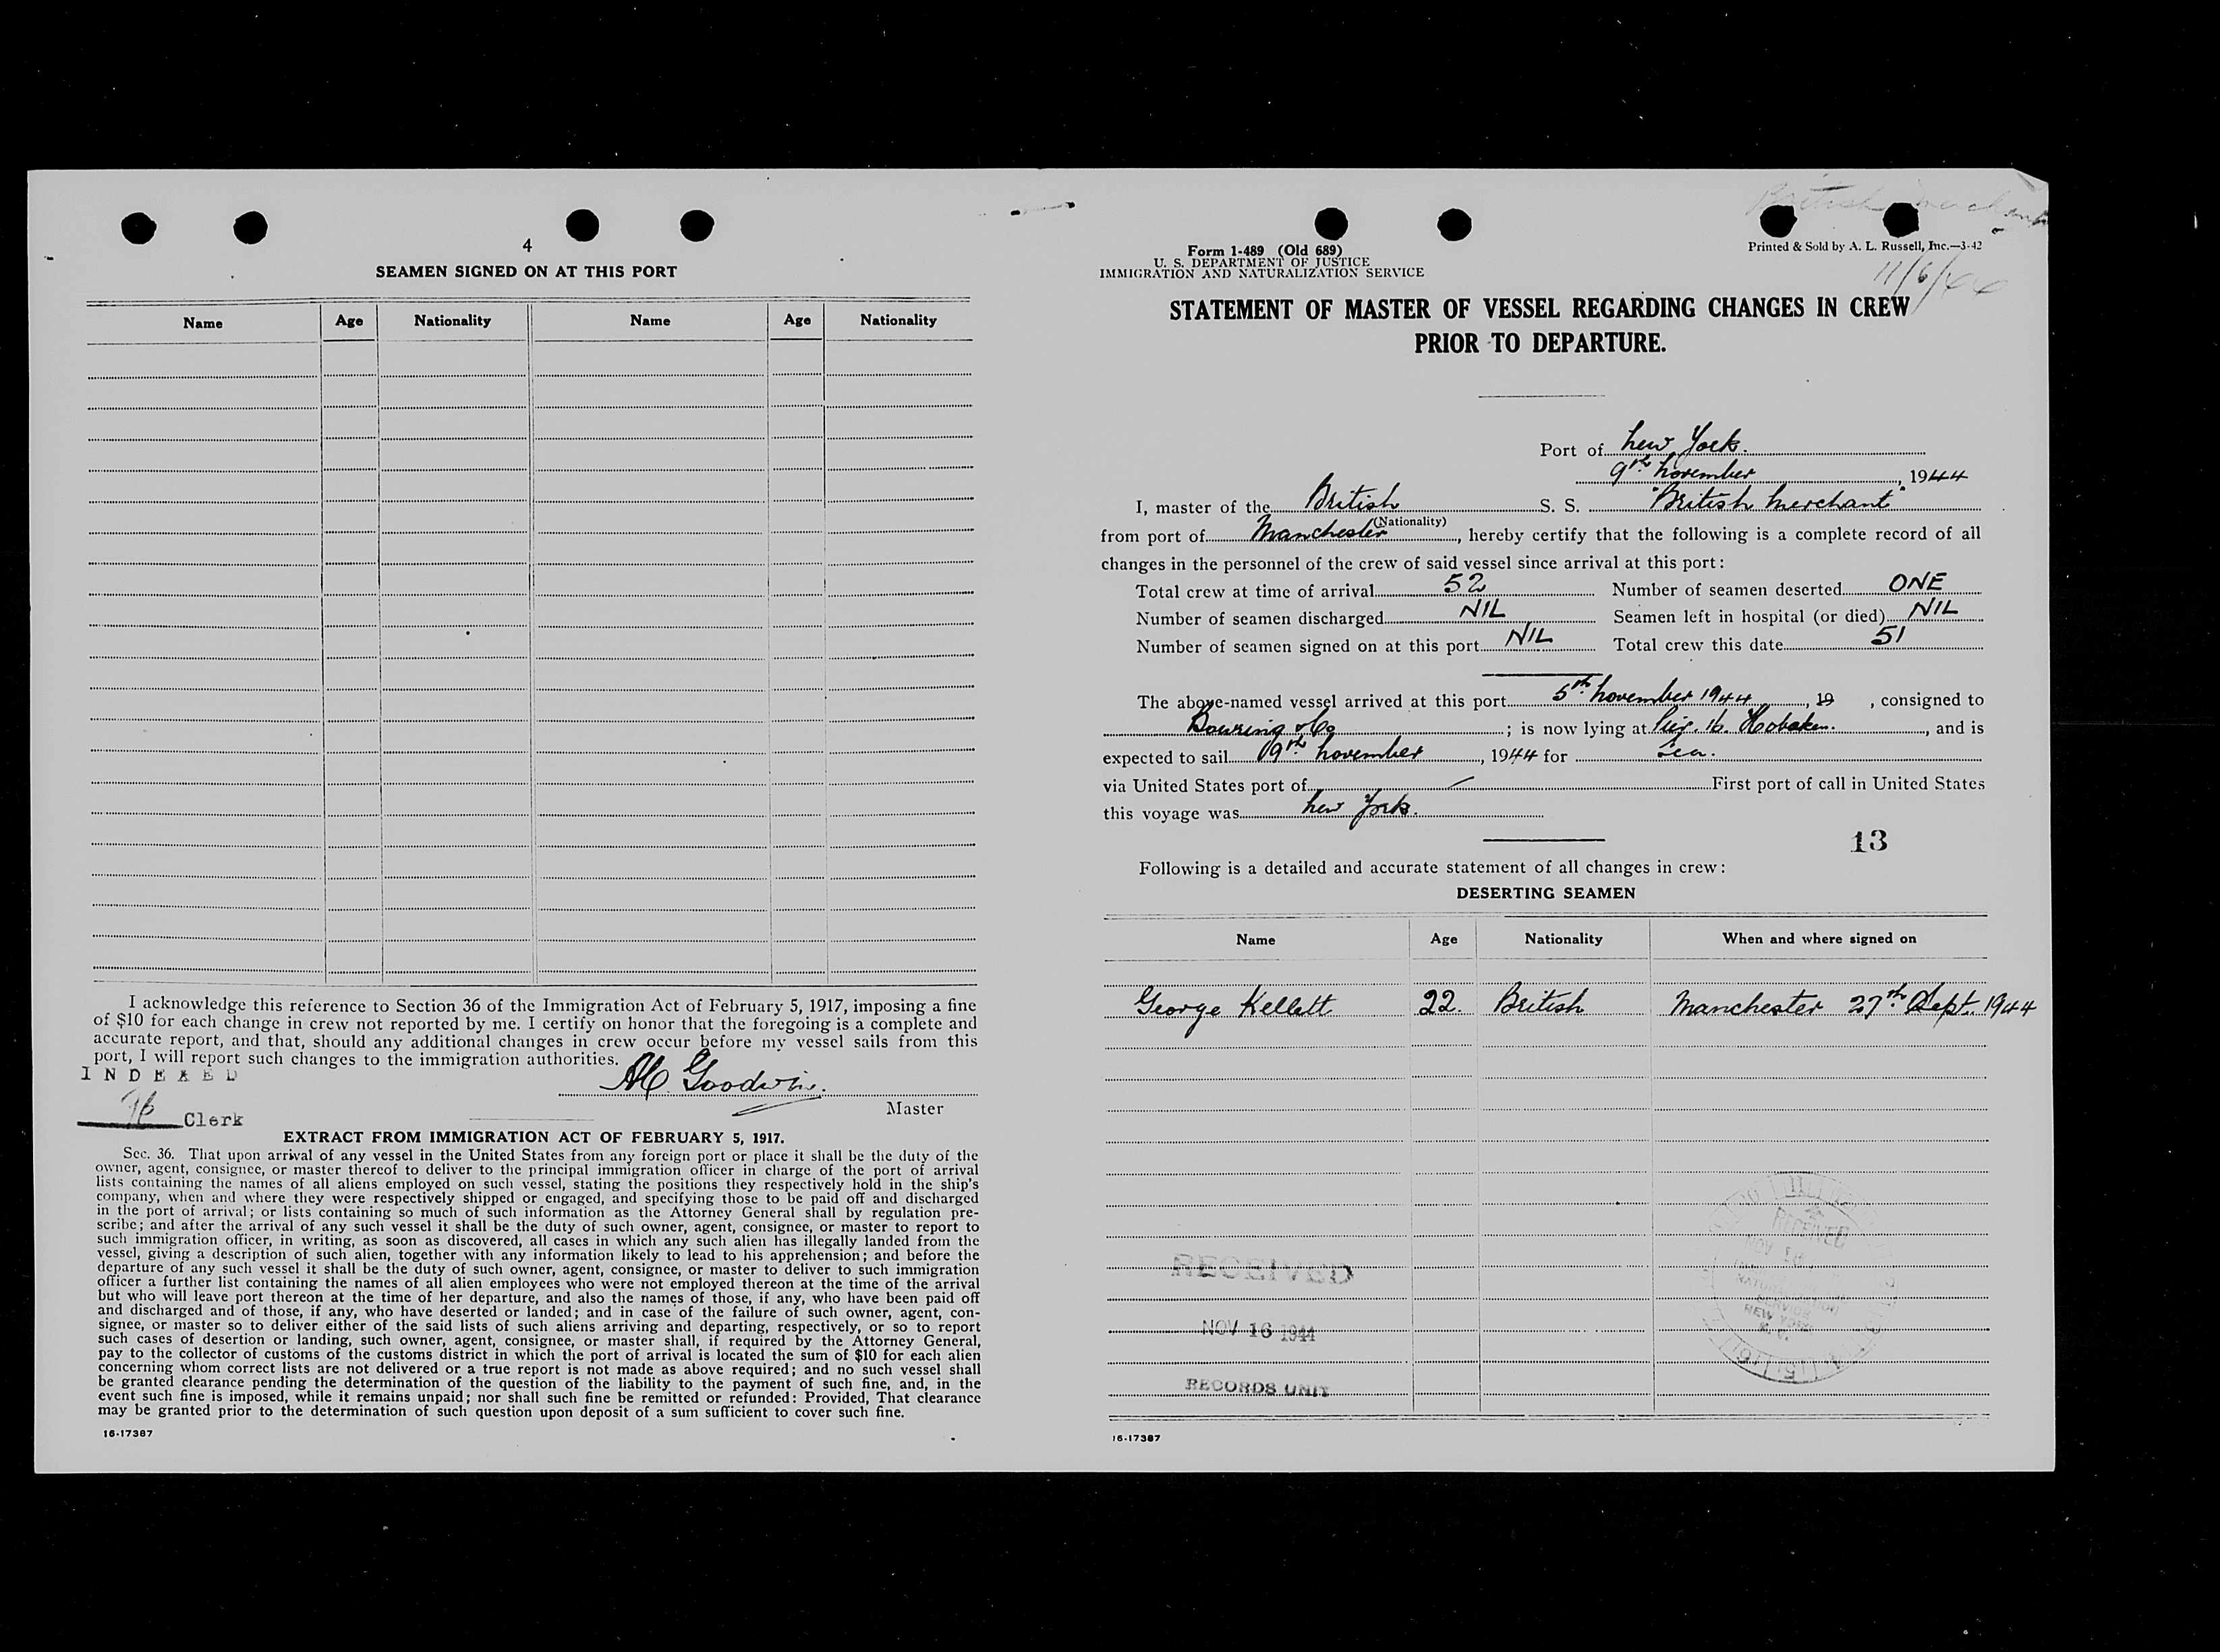 4
SEAMEN SIGNED ON AT THIS PORT
Name Age Nationality Name Age Nationality
I acknowledge this reference to Section 36 of the Immigration Act of February 5, 1917, imposing a fine
of $10 for each change in crew not reported by me. I certify on honor that the foregoing is a complete and
accurate report, and that, should any additional changes in crew occur before my vessel sails from this
port, I will report such changes to the immigration authorities.
INDEXED
Goodwin.
Master
Clerk
EXTRACT FROM IMMIGRATION ACT OF FEBRUARY 5, 1917.
Sec. 36. That upon arrival of any vessel in the United States from any foreign port or place it shall be the duty of the
owner, agent, consignee, or master thereof to deliver to the principal immigration officer in charge of the port of arrival
lists containing the names of all aliens employed on such vessel, stating the positions they respectively hold in the ship's
company, when and where they were respectively shipped or engaged, and specifying those to be paid off and discharged
in the port of arrival; or lists containing so much of such information as the Attorney General shall by regulation pre-
scribe; and after the arrival of any such vessel it shall be the duty of such owner, agent, consignee, or master to report to
such immigration officer, in writing, as soon as discovered, all cases in which any such alien has illegally landed from the
vessel, giving a description of such alien, together with any information likely to lead to his apprehension; and before the
departure of any such vessel it shall be the duty of such owner, agent, consignee, or master to deliver to such immigration
officer a further list containing the names of all alien employees who were not employed thereon at the time of the arrival
but who will leave port thereon at the time of her departure, and also the names of those, if any, who have been paid off
and discharged and of those, if any, who have deserted or landed; and in case of the failure of such owner, agent, con-
signee, or master so to deliver either of the said lists of such aliens arriving and departing, respectively, or so to report
such cases of desertion or landing, such owner, agent, consignee, or master shall, if required by the Attorney General,
pay to the collector of customs of the customs district in which the port of arrival is located the sum of $10 for each alien
concerning whom correct lists are not delivered or a true report is not made as above required; and no such vessel shall
be granted clearance pending the determination of the question of the liability to the payment of such fine, and, in the
event such fine is imposed, while it remains unpaid; nor shall such fine be remitted or refunded: Provided, That clearance
may be granted prior to the determination of such question upon deposit of a sum sufficient to cover such fine.
16-17387
British Merchant
Form I-489 (Old 689)
U. S. DEPARTMENT OF JUSTICE
IMMIGRATION AND NATURALIZATION SERVICE
Printed & Sold by A. L. Russell, Inc.—3-42
11/6/44
STATEMENT OF MASTER OF VESSEL REGARDING CHANGES IN CREW
PRIOR TO DEPARTURE.
Port of New York.
9th November, 1944
I, master of the British S. S. "British Merchant"
(Nationality)
from port of Manchester, hereby certify that the following is a complete record of all
changes in the personnel of the crew of said vessel since arrival at this port:
Total crew at time of arrival 52 Number of seamen deserted ONE
Number of seamen discharged NIL Seamen left in hospital (or died) NIL
Number of seamen signed on at this port NIL Total crew this date 51
The above-named vessel arrived at this port 5th November 1944, 19 , consigned to
Bowring & Co; is now lying at Pier. 16. Hoboken., and is
expected to sail 9th November, 1944 for Sea.
via United States port of — First port of call in United States
this voyage was New York.
13
Following is a detailed and accurate statement of all changes in crew:
DESERTING SEAMEN
Name Age Nationality When and where signed on
George Kellett 22. British Manchester 27th Sept. 1944
RECEIVED
NOV 16 1944
RECORDS UNIT
RECEIVED
NOV 16
NATURALIZATION
SERVICE
NEW YORK
N. Y.
16-17387